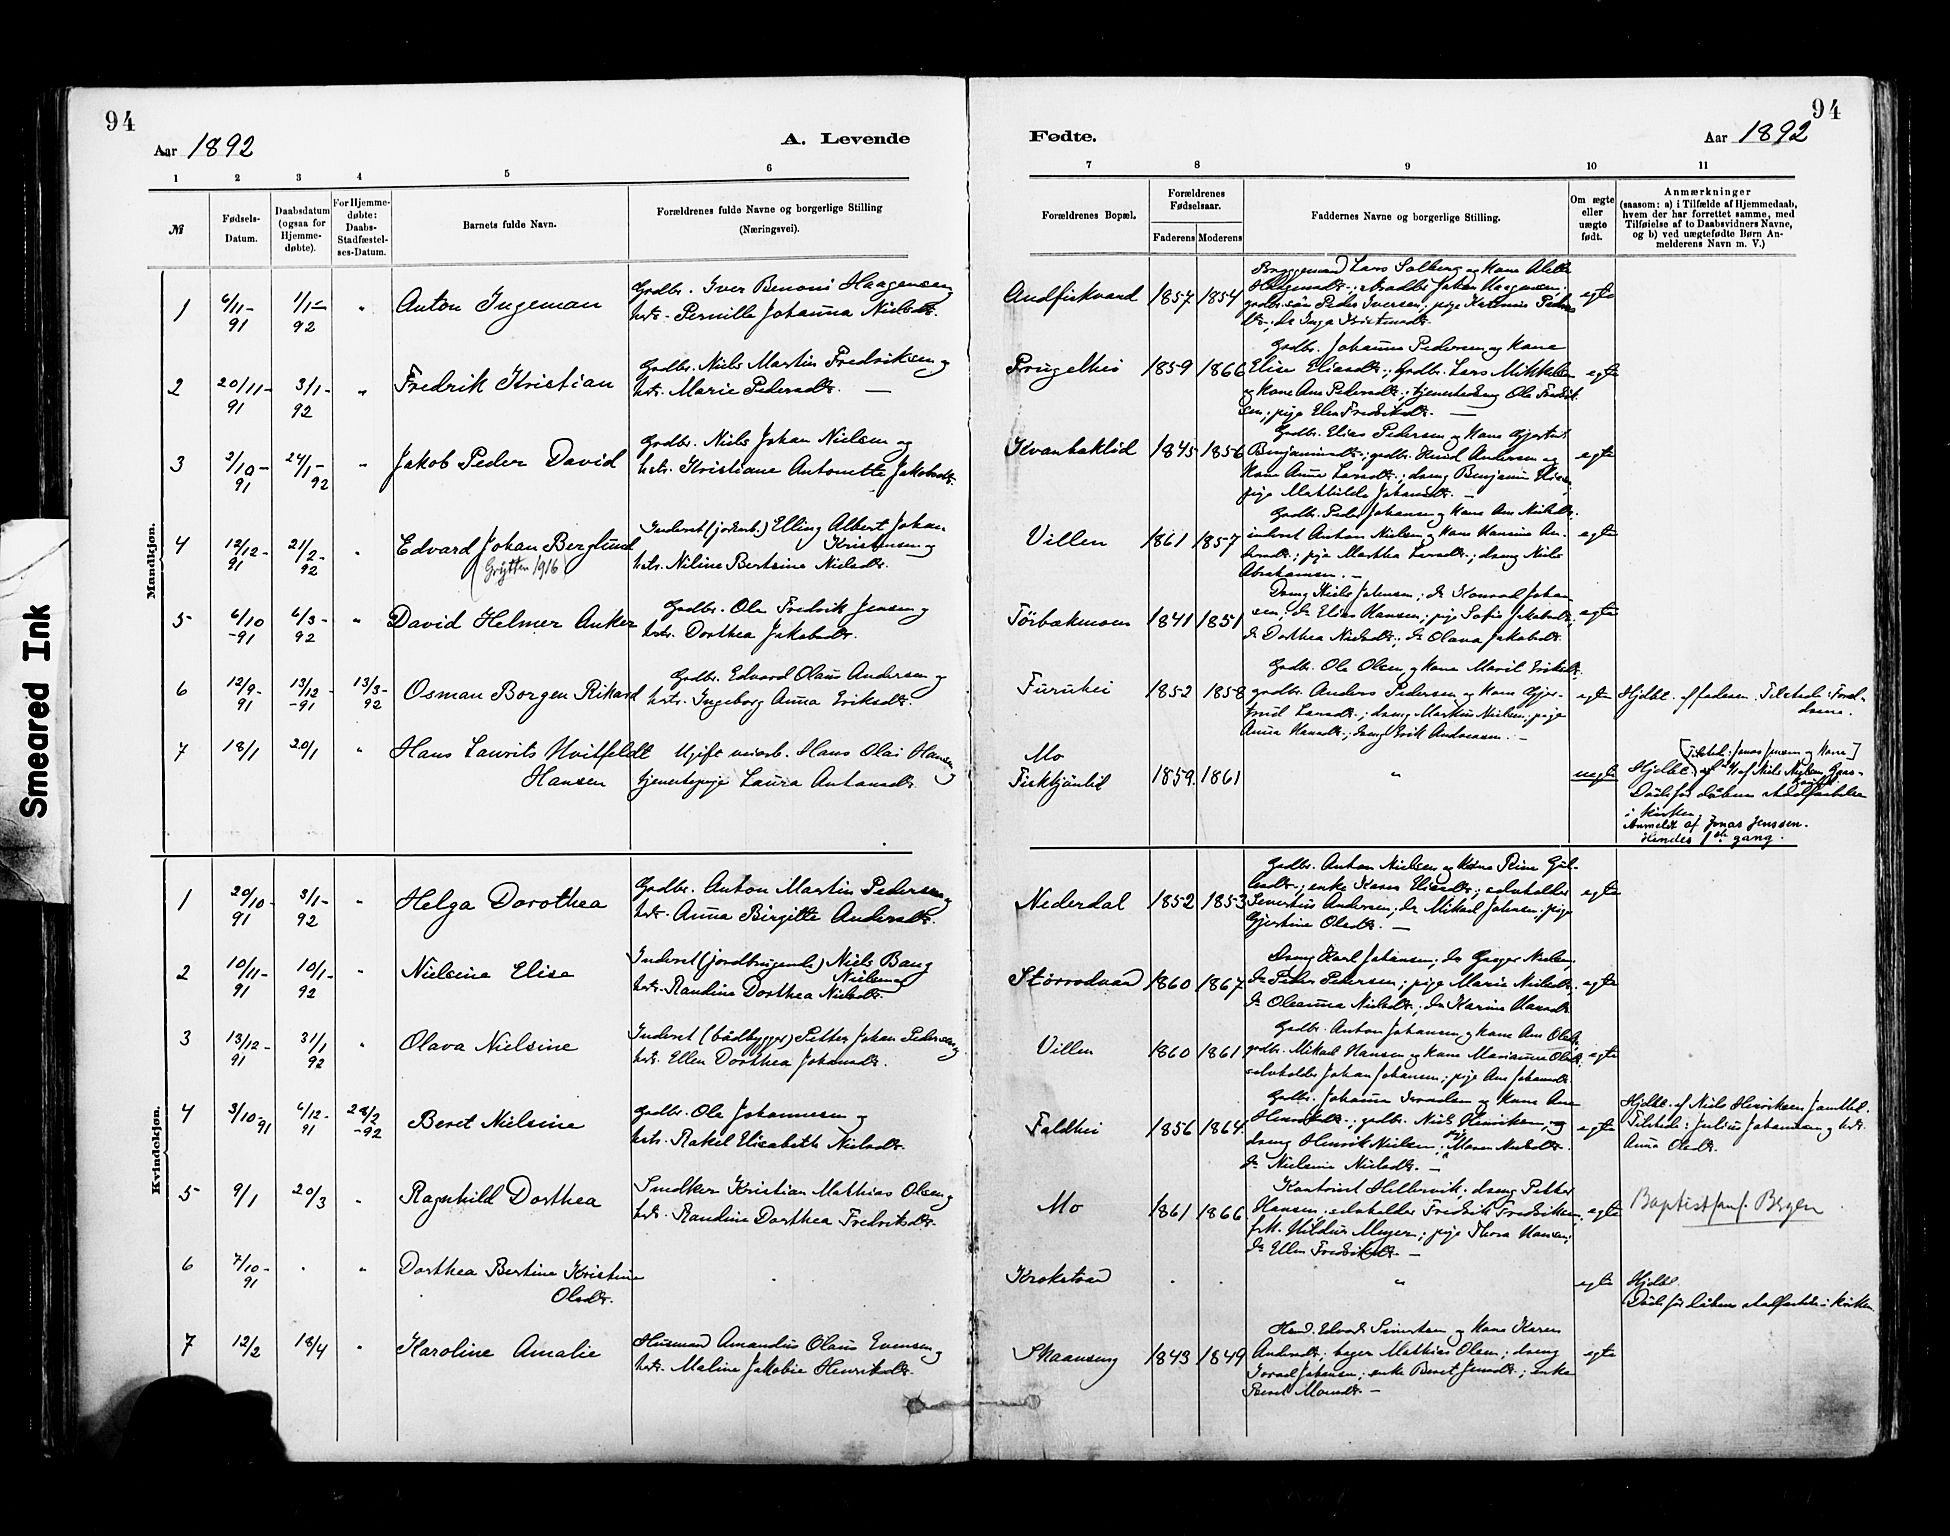 94
94
Aar 1892
A. Levende
Fødte.
Aar 1892
1 2 3 4 5 6 7 8 9 10 11
№
Fødsels-
Datum.
Daabsdatum
(ogsaa for
Hjemme-
døbte).
For Hjemme-
døbte:
Daabs-
Stadfæstel-
ses-Datum.
Barnets fulde Navn.
Forældrenes fulde Navne og borgerlige Stilling
(Næringsvei).
Forældrenes Bopæl.
Forældrenes
Fødselsaar.
Faderens Moderens
Faddernes Navne og borgerlige Stilling.
Om ægte
eller
uægte
født.
Anmærkninger
(saasom: a) i Tilfælde af Hjemmedaab,
hvem der har forrettet samme, med
Tilføielse af to Daabsvidners Navne,
og b) ved uægtefødte Børn An-
melderens Navn m. V.)
Mandkjøn.
1 6/11-91 1/1-92 " Anton Ingeman
Gadbr. Iver Benoni Haagensen og
hstr. Pernille Johanna Nielsdtr.
Andfiskvand 1857 1854
Lars Solberg og Kone
gadbr.søn Peder Iversen; pige
egte
2 20/11-91 3/1-92 " Fredrik Kristian
Gadbr. Niels Martin Fredriksen og
hstr. Marie Pedersdtr. —
Prugelhei 1859 1866
Gadbr. Johannes Pedersen og Kone
Elise Eliasdtr.; Gadbr. Lars Mikkelsen
og Kone Ane Pedersdtr.; tjenestedreng Ole Fredrik-
sen; pige Elen Fredriksdtr. —
egte
3 2/10-91 24/1-92 " Jakob Peder David
Gadbr. Niels Johan Nielsen og
hstr. Kristiane Antonette Jakobsdtr.
Kvanbaklid 1845 1856
Gadbr. Elias Pedersen og Kone
Benjaminsdtr.; gadbr. Andersen og
Kone Anne Larsdtr.; dreng Benjamin
pige Mathilde Johansdtr. —
egte
4 12/12-91 21/2-92 " Edvard Johan Berglund
(Grytten 1916)
Inderst (jordbr.) Elling Albert Johan
Kristensen og
hstr. Niline Bertine Nielsdtr.
Villen 1861 1857
Gadbr. Peder Johansen og Kone Ane
inderst Anton Nielsen og Kone Hansine An-
dersdtr.; pige Martha Larsdtr.; dreng Niels
Abrahamsen. —
egte
5 6/10-91 6/3-92 " David Helmer Anker
Gadbr. Ole Fredrik Jensen og
hstr. Dorthea Jakobsdtr.
Tørbakmoen 1841 1851
Dreng Niels Johnsen; do Konrad Johan-
sen; do Elias Hansen; pige Sofie Jakobsdtr.
do Dorthea Nielsdtr.; do Olava Jakobsdtr.
egte
6 12/9-91 13/12-91 13/3-92 Osman Borgen Rikard
Gadbr. Edvard Olaus Andersen og
hstr. Ingeborg Anna Eriksdtr.
Furuhei 1852 1858
Gadbr. Ole Olsen og Kone Marit Eriksdtr.
gadbr. Anders Pedersen og Kone Gjer-
trud Larsdtr.; dreng Markus Nielsen; pige
Anna Hansdtr.; dreng Erik Andreasen. —
egte
Hjdbt. af faderen. Tilstede: Fad-
derne.
7 18/1 20/1 " Hans Laurits Hvitfeldt
Hansen
Ugift Hans Olai Hansen og
tjenestepige Laura Antonsdtr.
Mo
Fisktjønli 1859. 1861
" uegte
[Tilstede: Jonas Jensen og Kone]
Hjdbt.
Død før dåben stadfæstedes
i kirken.
Anmeldt af Jonas Jenssen.
Hendes 1ste gang.
Kvindekjøn.
1 20/10-91 3/1-92 " Helga Dorothea
Gadbr. Anton Martin Pedersen og
hstr. Anna Birgitte Andersdtr.
Nederdal 1852 1853
Gadbr. Anton Nielsen og Kone
enke Karen Eliasdtr.; selvholder
Sivertius Andersen; do Mikael Johnsen; pige
Gjertine Olsdtr. —
egte
2 10/11-91 10/1-92 " Nielsine Elise
Inderst (jordbrugende) Niels Bang
Nielsen og
hstr. Randine Dorthea Nielsdtr.
1860 1867
Dreng Karl Johansen; do
do Peder Pedersen; pige Marie Nielsdtr.
do Oleanna Nielsdtr.; do Karine Hansdtr.
egte
3 13/12-91 31/1 92 " Olava Nielsine
Inderst (bådbygger) Petter Johan Pedersen og
hstr. Ellen Dorthea Johansdtr.
Villen 1860 1861
Gadbr. Anton Johansen og Kone Ane Olsdtr.
gadbr. Mikael Hansen og Kone Marianne Olsdtr.
selvholder Johan Johansen; pige Ane Johansdtr.
egte
4 3/10-91 6/12-91 28/2-92 Beret Nielsine
Gadbr. Ole Johannesen og
hstr. Rakel Elisabeth Nielsdtr.
Faldhei 1856 1864
Gadbr. Johannes Israelsen og Kone Ane
Henriksdtr.; gadbr. Niels Henriksen, og
dreng Henrik Nielsen; Maren Nielsdtr.
do Nielsine Nielsdtr. —
egte
Hjdbt. af Niels Henriksen
Tilstede: Julius Johansen og hstr.
Anna Olsdtr.
5 9/1 20/3 " Ragnhild Dorthea
Snedker Kristian Mathias Olsen og
hstr. Randine Dorthea Fredriksdtr.
Mo 1861 1866
Kontorist Hellervik; dreng Petter
Hansen; selvholder Fredrik Fredriksen
frk. Hildur Meyer; pige Thora Hansen;
do Ellen Fredriksdtr. —
egte
Baptist Bergen
6 7/10-91 . " Dorthea Bertine Kristine
Olsdtr.
Krokstrand . . " egte
Hjdbt.
Død før dåben stadfæstedes i kirken
7 12/2 18/4 " Karoline Amalie
Husmand Amandus Olaus Evensen og
hstr. Maline Jakobie Henriksdtr.
Skaanseng 1843 1849
Edvard Sivertsen og Kone Karen
Andersdtr.; bager Mathias Olsen; dreng
Israel Johansen; enke Beret Jensdtr.; enke
Beret Monsdtr. —
egte
Smeared Ink